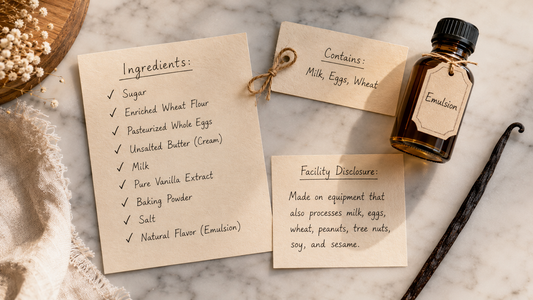 Ingredients:
✓ Sugar
✓ Enriched Wheat Flour
✓ Pasteurized Whole Eggs
✓ Unsalted Butter (Cream)
✓ Milk
✓ Pure Vanilla Extract
✓ Baking Powder
✓ Salt
✓ Natural Flavor (Emulsion)
Contains:
Milk, Eggs, Wheat
Emulsion
Facility Disclosure:
Made on equipment that
also processes milk, eggs,
wheat, peanuts, tree nuts,
soy, and sesame.